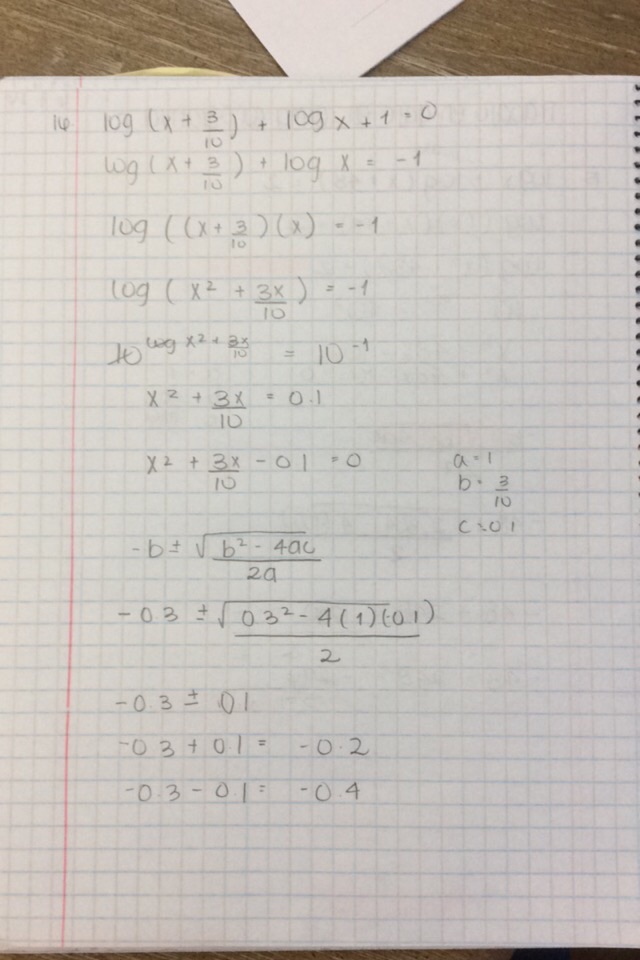 16 log (x + 3/10) + log x + 1 = 0
log (x + 3/10) + log x = -1
log ((x + 3/10)(x) = -1
log (x² + 3x/10) = -1
10^(log x² + 3x/10) = 10⁻¹
x² + 3x/10 = 0.1
x² + 3x/10 - 0.1 = 0
a = 1
b = 3/10
c = 0.1
-b ± √(b² - 4ac / 2a)
-0.3 ± √(0.3² - 4(1)(-0.1) / 2)
-0.3 ± 0.1
-0.3 + 0.1 = -0.2
-0.3 - 0.1 = -0.4